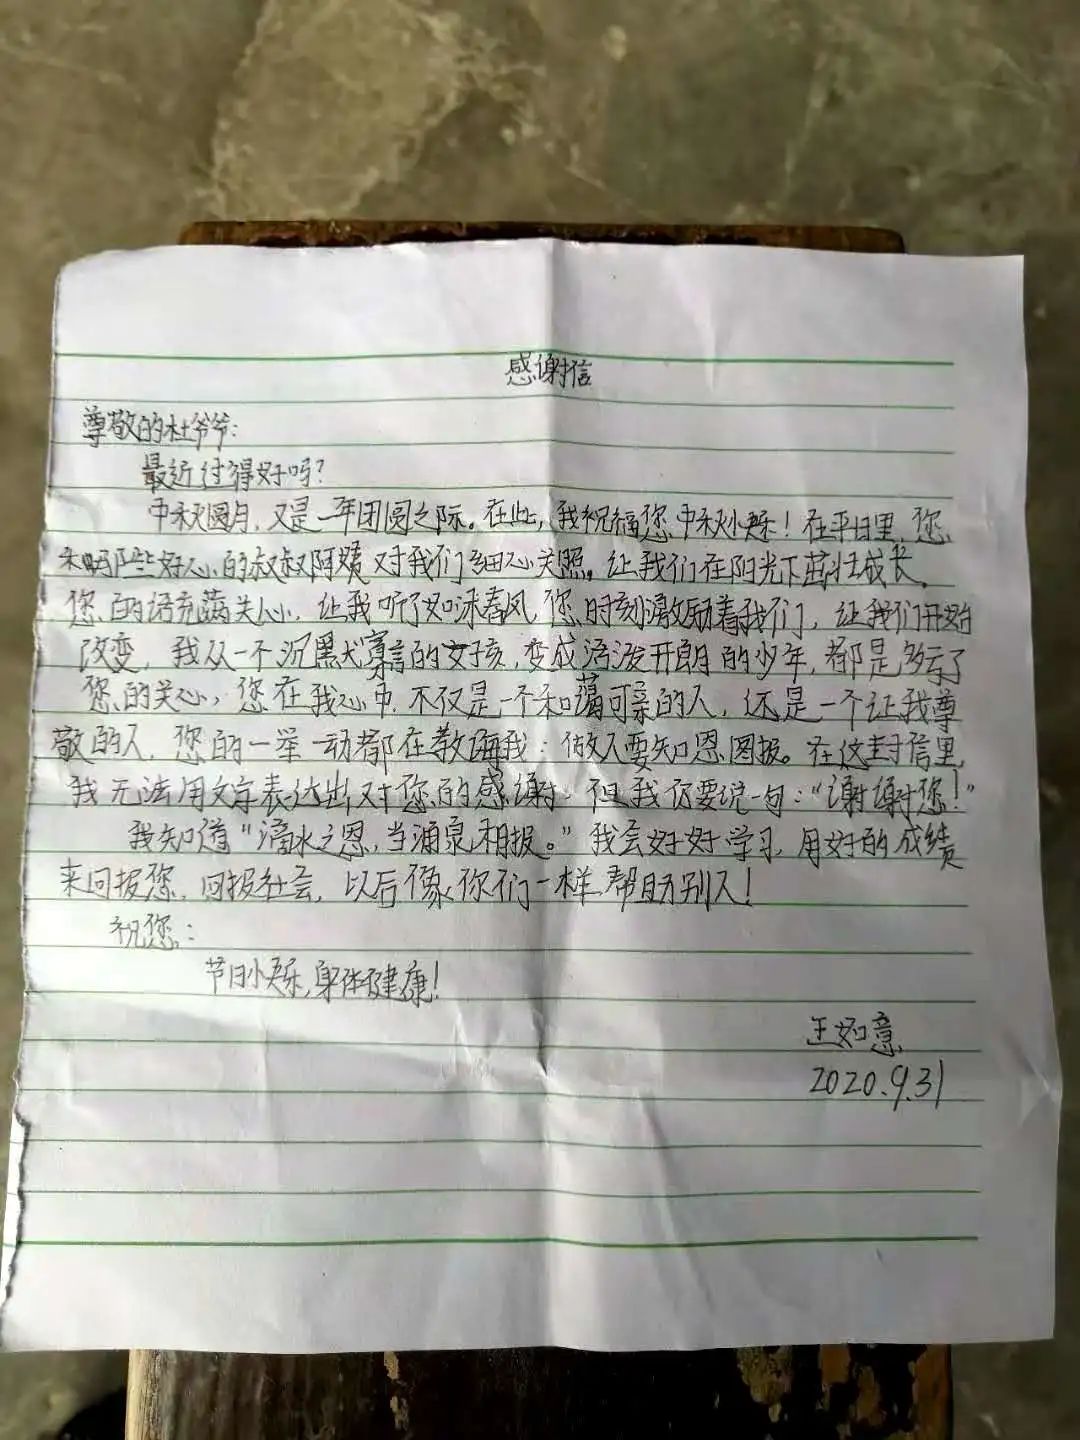 感谢信
尊敬的杜爷爷:
最近过得好吗?
中秋圆月,又是一年团圆之际。在此,我祝福您,中秋快乐!在平日里,您
和那些好心的叔叔阿姨对我们细心关照。让我们在阳光下茁壮成长。
您的话充满关心,让我听了如沐春风,您时刻激励着我们,让我们开始
改变,我从一个沉默寡言的女孩,变成活泼开朗的少年,都是多亏了
您的关心,您在我心中,不仅是一个和蔼可亲的人,还是一个让我尊
敬的人,您的一举一动都在教诲我:做人要知恩图报。在这封信里,
我无法用文字表达出对您的感谢,但我仍要说一句:“谢谢您!”
我知道“滴水之恩,当涌泉相报。”我会好好学习,用好的成绩
来回报您,回报社会,以后像你们一样帮助别人!
祝您:
节日快乐,身体健康!
王如意
2020.9.31